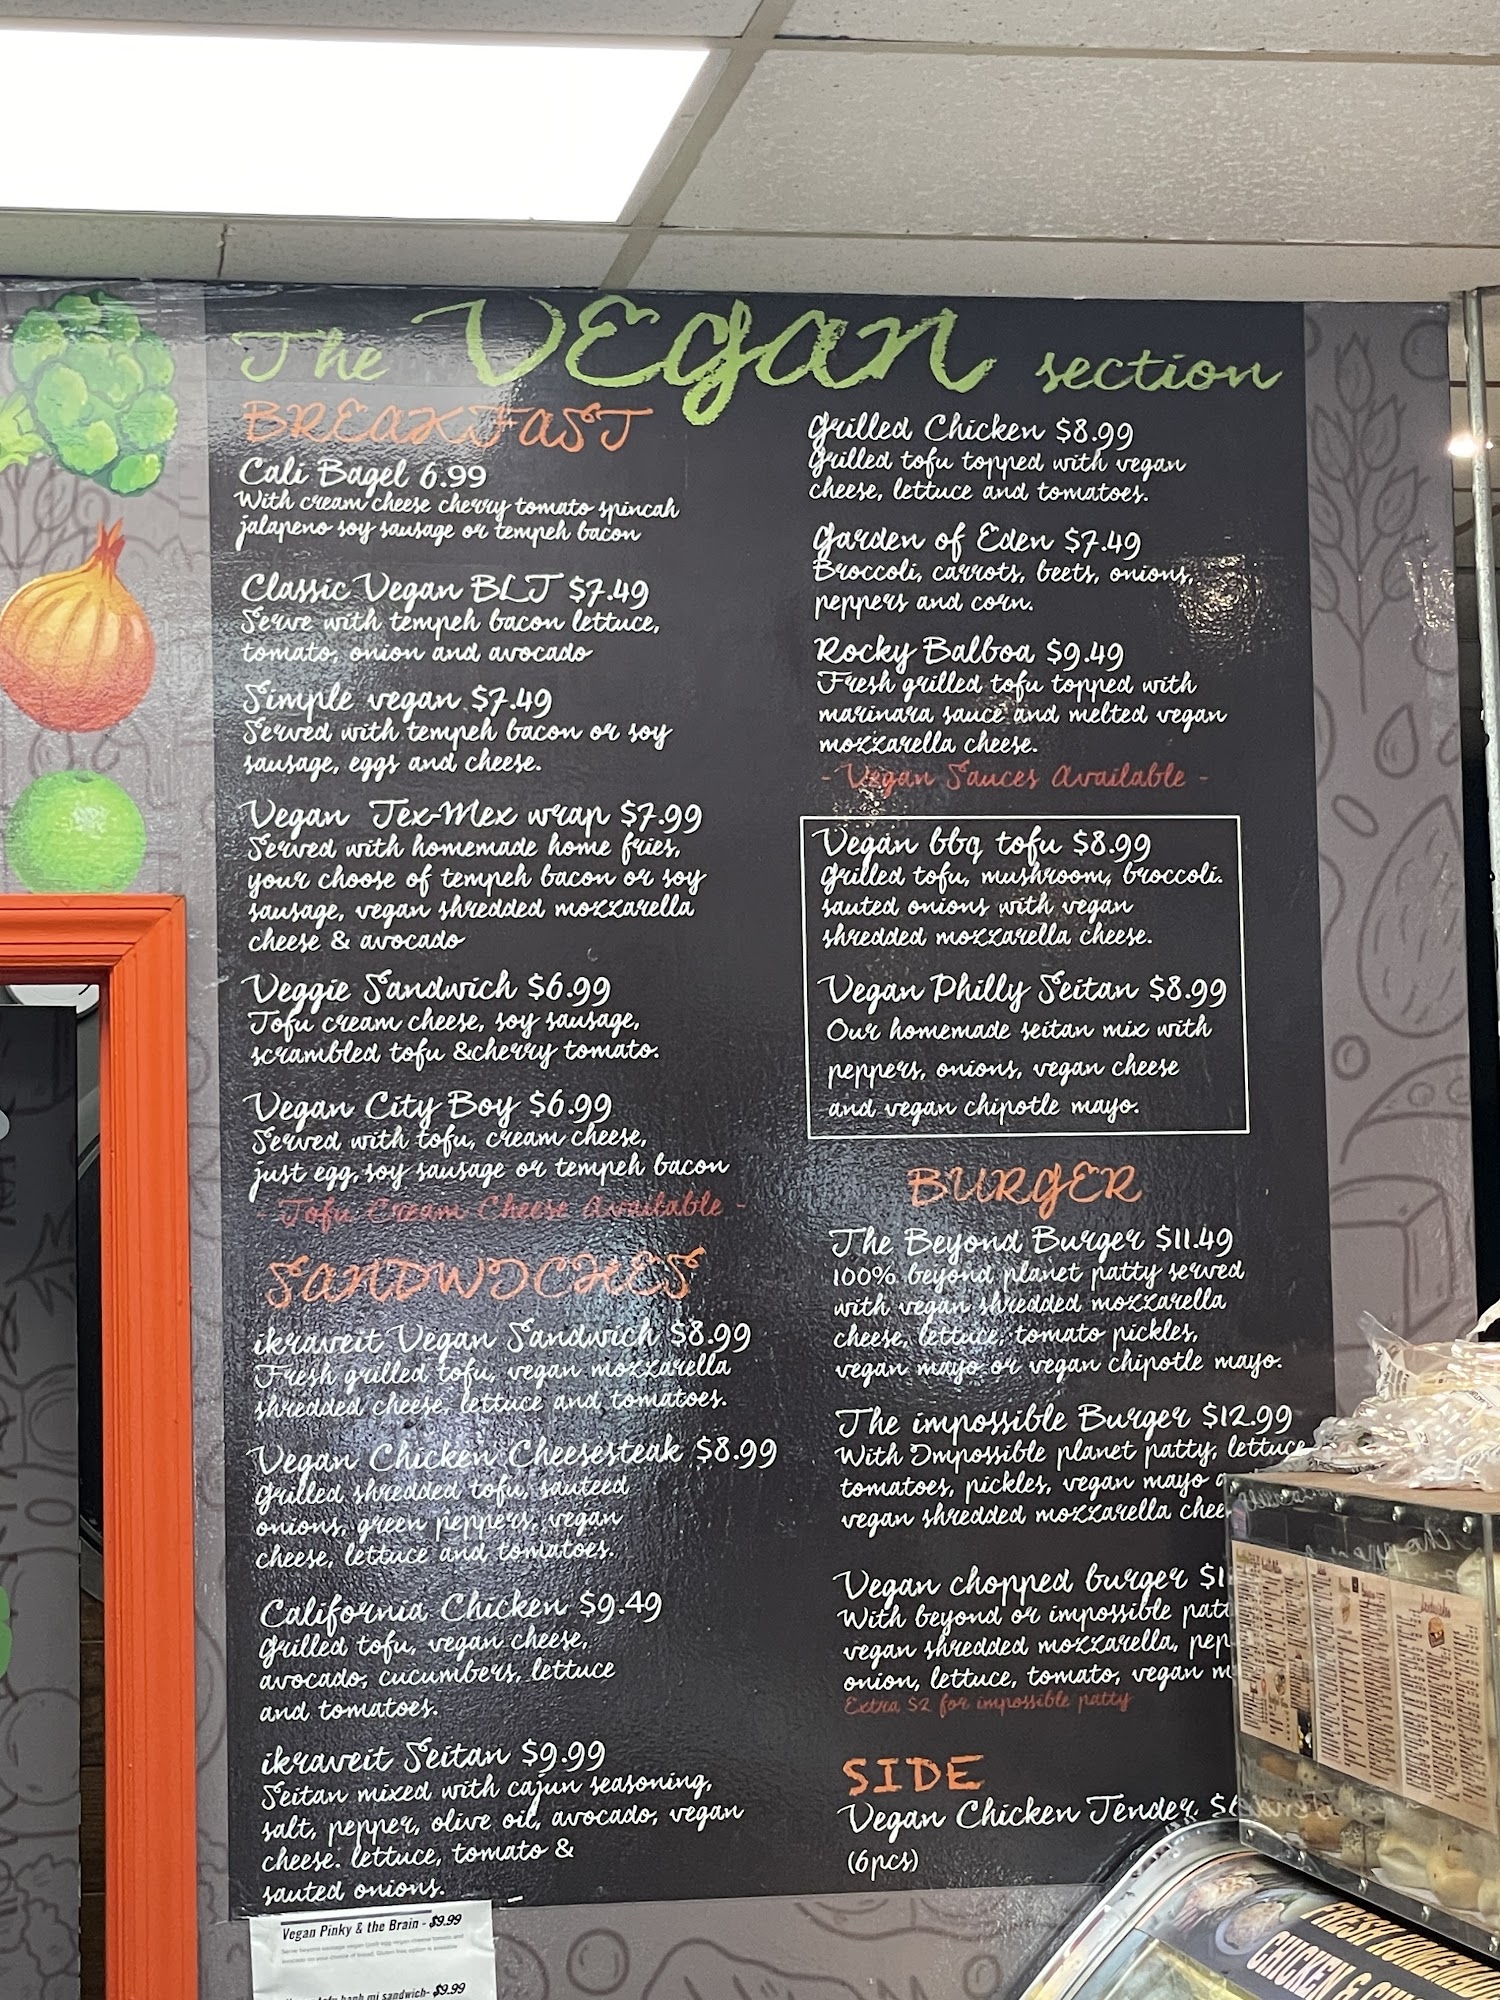 The VEgan section
BREAKFAST
Cali Bagel 6.99
With cream cheese cherry tomato spincah
jalapeno soy sausage or tempeh bacon
Classic Vegan BLT $7.49
Serve with tempeh bacon lettuce,
tomato, onion and avocado
Simple vegan $7.49
Served with tempeh bacon or soy
sausage, eggs and cheese.
Vegan Tex-Mex wrap $7.99
Served with homemade home fries,
your choose of tempeh bacon or soy
sausage, vegan shredded mozzarella
cheese & avocado
Veggie Sandwich $6.99
Tofu cream cheese, soy sausage,
scrambled tofu &cherry tomato.
Vegan City Boy $6.99
Served with tofu, cream cheese,
just egg, soy sausage or tempeh bacon
- Tofu Cream Cheese Available -
SANDWICHES
ikraveit Vegan Sandwich $8.99
Fresh grilled tofu, vegan mozzarella
shredded cheese, lettuce and tomatoes.
Vegan Chicken Cheesesteak $8.99
Grilled shredded tofu, sauteed
onions, green peppers, vegan
cheese, lettuce and tomatoes.
California Chicken $9.49
Grilled tofu, vegan cheese,
avocado, cucumbers, lettuce
and tomatoes.
ikraveit Seitan $9.99
Seitan mixed with cajun seasoning,
salt, pepper, olive oil, avocado, vegan
cheese. lettuce, tomato &
sauted onions.
Vegan Pinky & the Brain - $9.99
banh mi sandwich- $9.99
Grilled Chicken $8.99
Grilled tofu topped with vegan
cheese, lettuce and tomatoes.
Garden of Eden $7.49
Broccoli, carrots, beets, onions,
peppers and corn.
Rocky Balboa $9.49
Fresh grilled tofu topped with
marinara sauce and melted vegan
mozzarella cheese.
- Vegan Sauces Available -
Vegan bbq tofu $8.99
Grilled tofu, mushroom, broccoli.
sauted onions with vegan
shredded mozzarella cheese.
Vegan Philly Seitan $8.99
Our homemade seitan mix with
peppers, onions, vegan cheese
and vegan chipotle mayo.
BURGER
The Beyond Burger $11.49
100% beyond planet patty served
with vegan shredded mozzarella
cheese, lettuce, tomato pickles,
vegan mayo or vegan chipotle mayo.
The impossible Burger $12.99
With Impossible planet patty, lettuce
tomatoes, pickles, vegan mayo
vegan shredded mozzarella
Vegan chopped burger
With beyond or impossible
vegan shredded mozzarella,
onion, lettuce, tomato, vegan
Extra $2 for impossible patty
SIDE
Vegan Chicken Tender
(6pcs)
FRESH
CHICKEN &